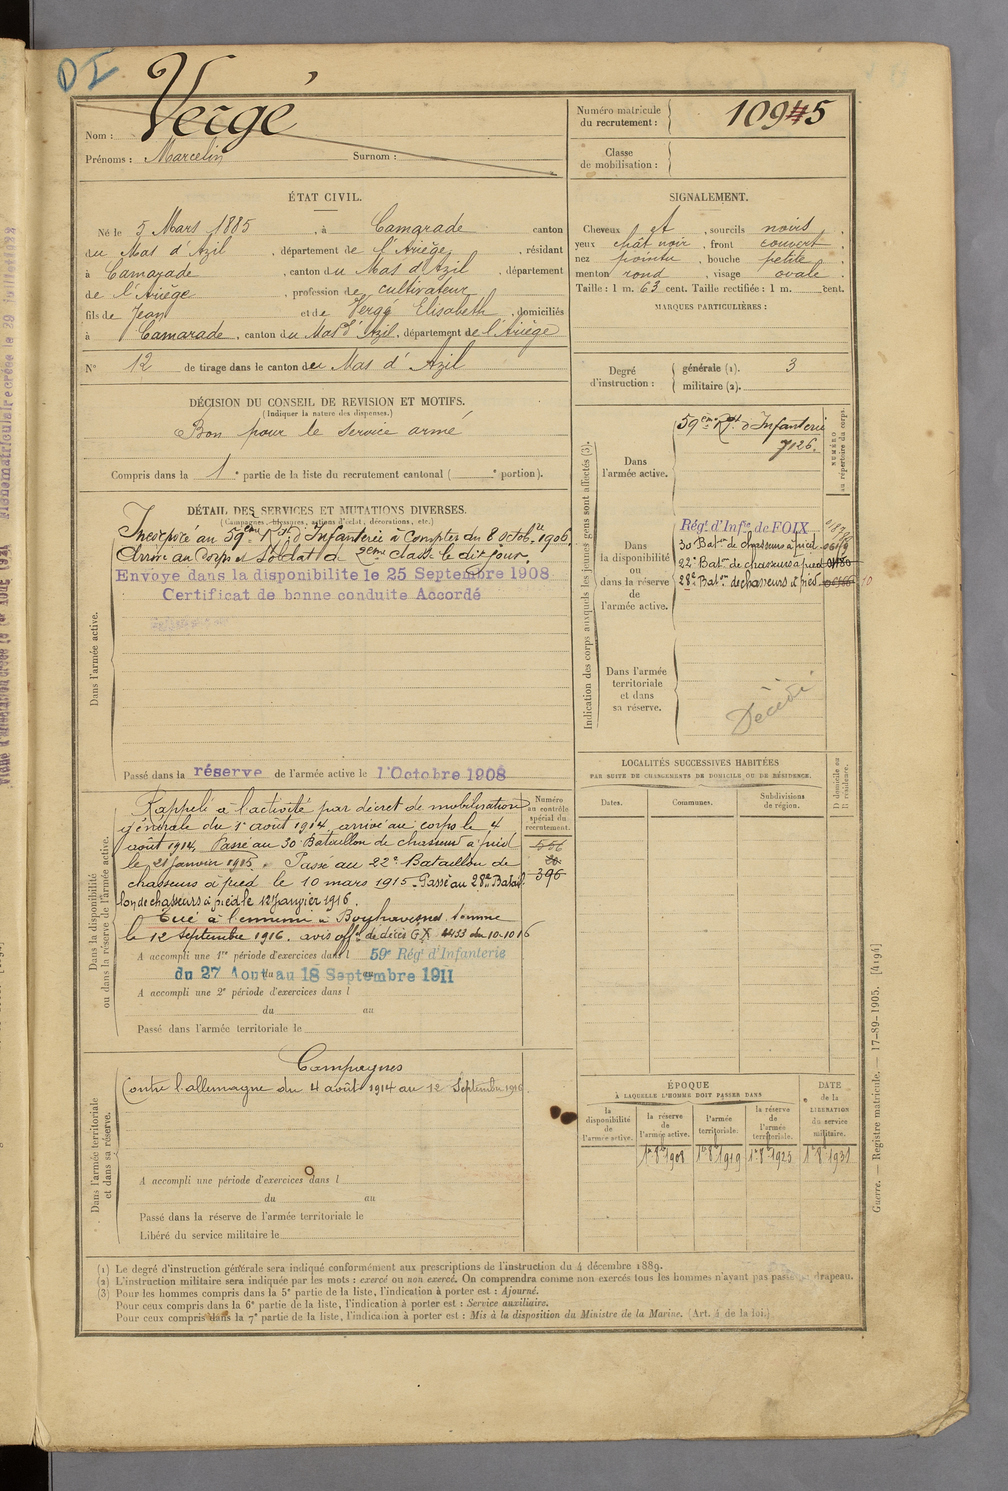 DI
Nom : Vergé
Prénoms : Marcelin Surnom :
Numéro matricule du recrutement : 10945
Classe de mobilisation :
ÉTAT CIVIL.
Né le 5 Mars 1885, à Camgrade canton
du Mas d'Azil, département de l'Ariège, résidant
à Camarade, canton du Mas d'Azil, département
de l'Ariège, profession de cultivateur
fils de Jean et de Vergé Elisabeth, domiciliés
à Camarade, canton du Mas d'Azil, département de l'Ariège
N° 12 de tirage dans le canton de Mas d'Azil
SIGNALEMENT.
Cheveux et, sourcils noirs,
yeux chât noir, front couvert,
nez pointu, bouche petite,
menton rond, visage ovale.
Taille : 1 m. 63 cent. Taille rectifiée : 1 m. cent.
MARQUES PARTICULIÈRES :
Degré d'instruction : générale (1). 3
militaire (2).
DÉCISION DU CONSEIL DE REVISION ET MOTIFS.
(Indiquer la nature des dispenses.)
Bon pour le service armé
Compris dans la 1e partie de la liste du recrutement cantonal ( e portion).
DÉTAIL DES SERVICES ET MUTATIONS DIVERSES.
(Campagnes, blessures, actions d'éclat, décorations, etc.)
Dans l'armée active.
Incorporé au 59eme Rgt d'Infanterie à Compter du 8 octobre 1906.
Arrivé au Corps et Soldat de 2eme classe le dit jour.
Envoye dans la disponibilite le 25 Septembre 1908
Certificat de bonne conduite Accordé
Passé dans la réserve de l'armée active le 1 Octobre 1908
Dans la disponibilité ou dans la réserve de l'armée active.
Rappelé à l'activité par décret de mobilisation
générale du 1er août 1914, arrivé au corps le 4
août 1914. Passé au 30e Bataillon de chasseurs à pied
le 21 janvier 1915. Passé au 22e Bataillon de
chasseurs à pied le 10 mars 1915. Passé au 28e Batail
lon de chasseurs à pied le 12 Janvier 1916.
Tué à l'ennemi à Bouchavesnes Somme
le 12 Septembre 1916. avis offel de décès GX 4453 du 10-10 16
A accompli une 1re période d'exercices dans l 59e Régt d'Infanterie
du 27 Aout au 18 Septembre 1911
A accompli une 2e période d'exercices dans l
du au
Passé dans l'armée territoriale le
Numéro au contrôle spécial du recrutement.
396
Dans l'armée territoriale et dans sa réserve.
Campagnes
Contre l'allemagne du 4 août 1914 au 12 Septembre 1916
A accompli une période d'exercices dans l
du au
Passé dans la réserve de l'armée territoriale le
Libéré du service militaire le
Indication des corps auxquels les jeunes gens sont affectés (3).
NUMÉRO au répertoire du corps.
Dans l'armée active.
59eme Rgt d'Infanterie
7126.
Dans la disponibilité ou dans la réserve de l'armée active.
Régt d'Infie de FOIX
30 Baton de chasseurs à pied
22e Baton de chasseurs à pied
28e Baton de chasseurs à pied
Dans l'armée territoriale et dans sa réserve.
Décédé
LOCALITÉS SUCCESSIVES HABITÉES
PAR SUITE DE CHANGEMENTS DE DOMICILE OU DE RÉSIDENCE.
Dates. Communes. Subdivisions de région. D domicile ou R résidence.
ÉPOQUE
À LAQUELLE L'HOMME DOIT PASSER DANS
la disponibilité de l'armée active.
la réserve de l'armée active.
l'armée territoriale.
la réserve de l'armée territoriale.
DATE de la LIBÉRATION du service militaire.
1er 8bre 1908 1er 8bre 1919 1er 8bre 1925 1er 8bre 1931
(1) Le degré d'instruction générale sera indiqué conformément aux prescriptions de l'instruction du 4 décembre 1889.
(2) L'instruction militaire sera indiquée par les mots : exercé ou non exercé. On comprendra comme non exercés tous les hommes n'ayant pas passé au drapeau.
(3) Pour les hommes compris dans la 5e partie de la liste, l'indication à porter est : Ajourné.
Pour ceux compris dans la 6e partie de la liste, l'indication à porter est : Service auxiliaire.
Pour ceux compris dans la 7e partie de la liste, l'indication à porter est : Mis à la disposition du Ministre de la Marine. (Art. 4 de la loi.)
Guerre. — Registre matricule. — 17-89-1905. [4194]